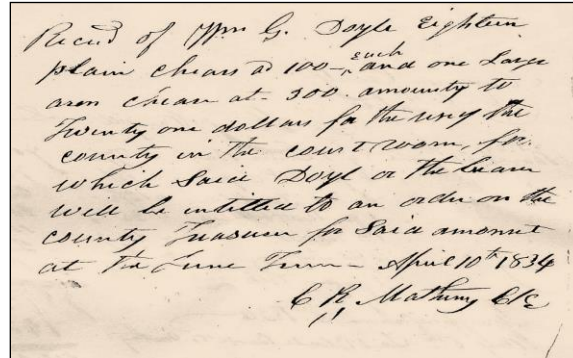 Recvd of Wm G. Doyle Eighteen
plain chears at 100 each and one Large
arm chear at 300. amounty to
Twenty one dollars for the use of the
county in the court room, for
which Said Doyl or the bearer
will be intitled to an order on the
county Treasurer for Said amount
at the June Term - April 10th 1834
C R Matheny Clk